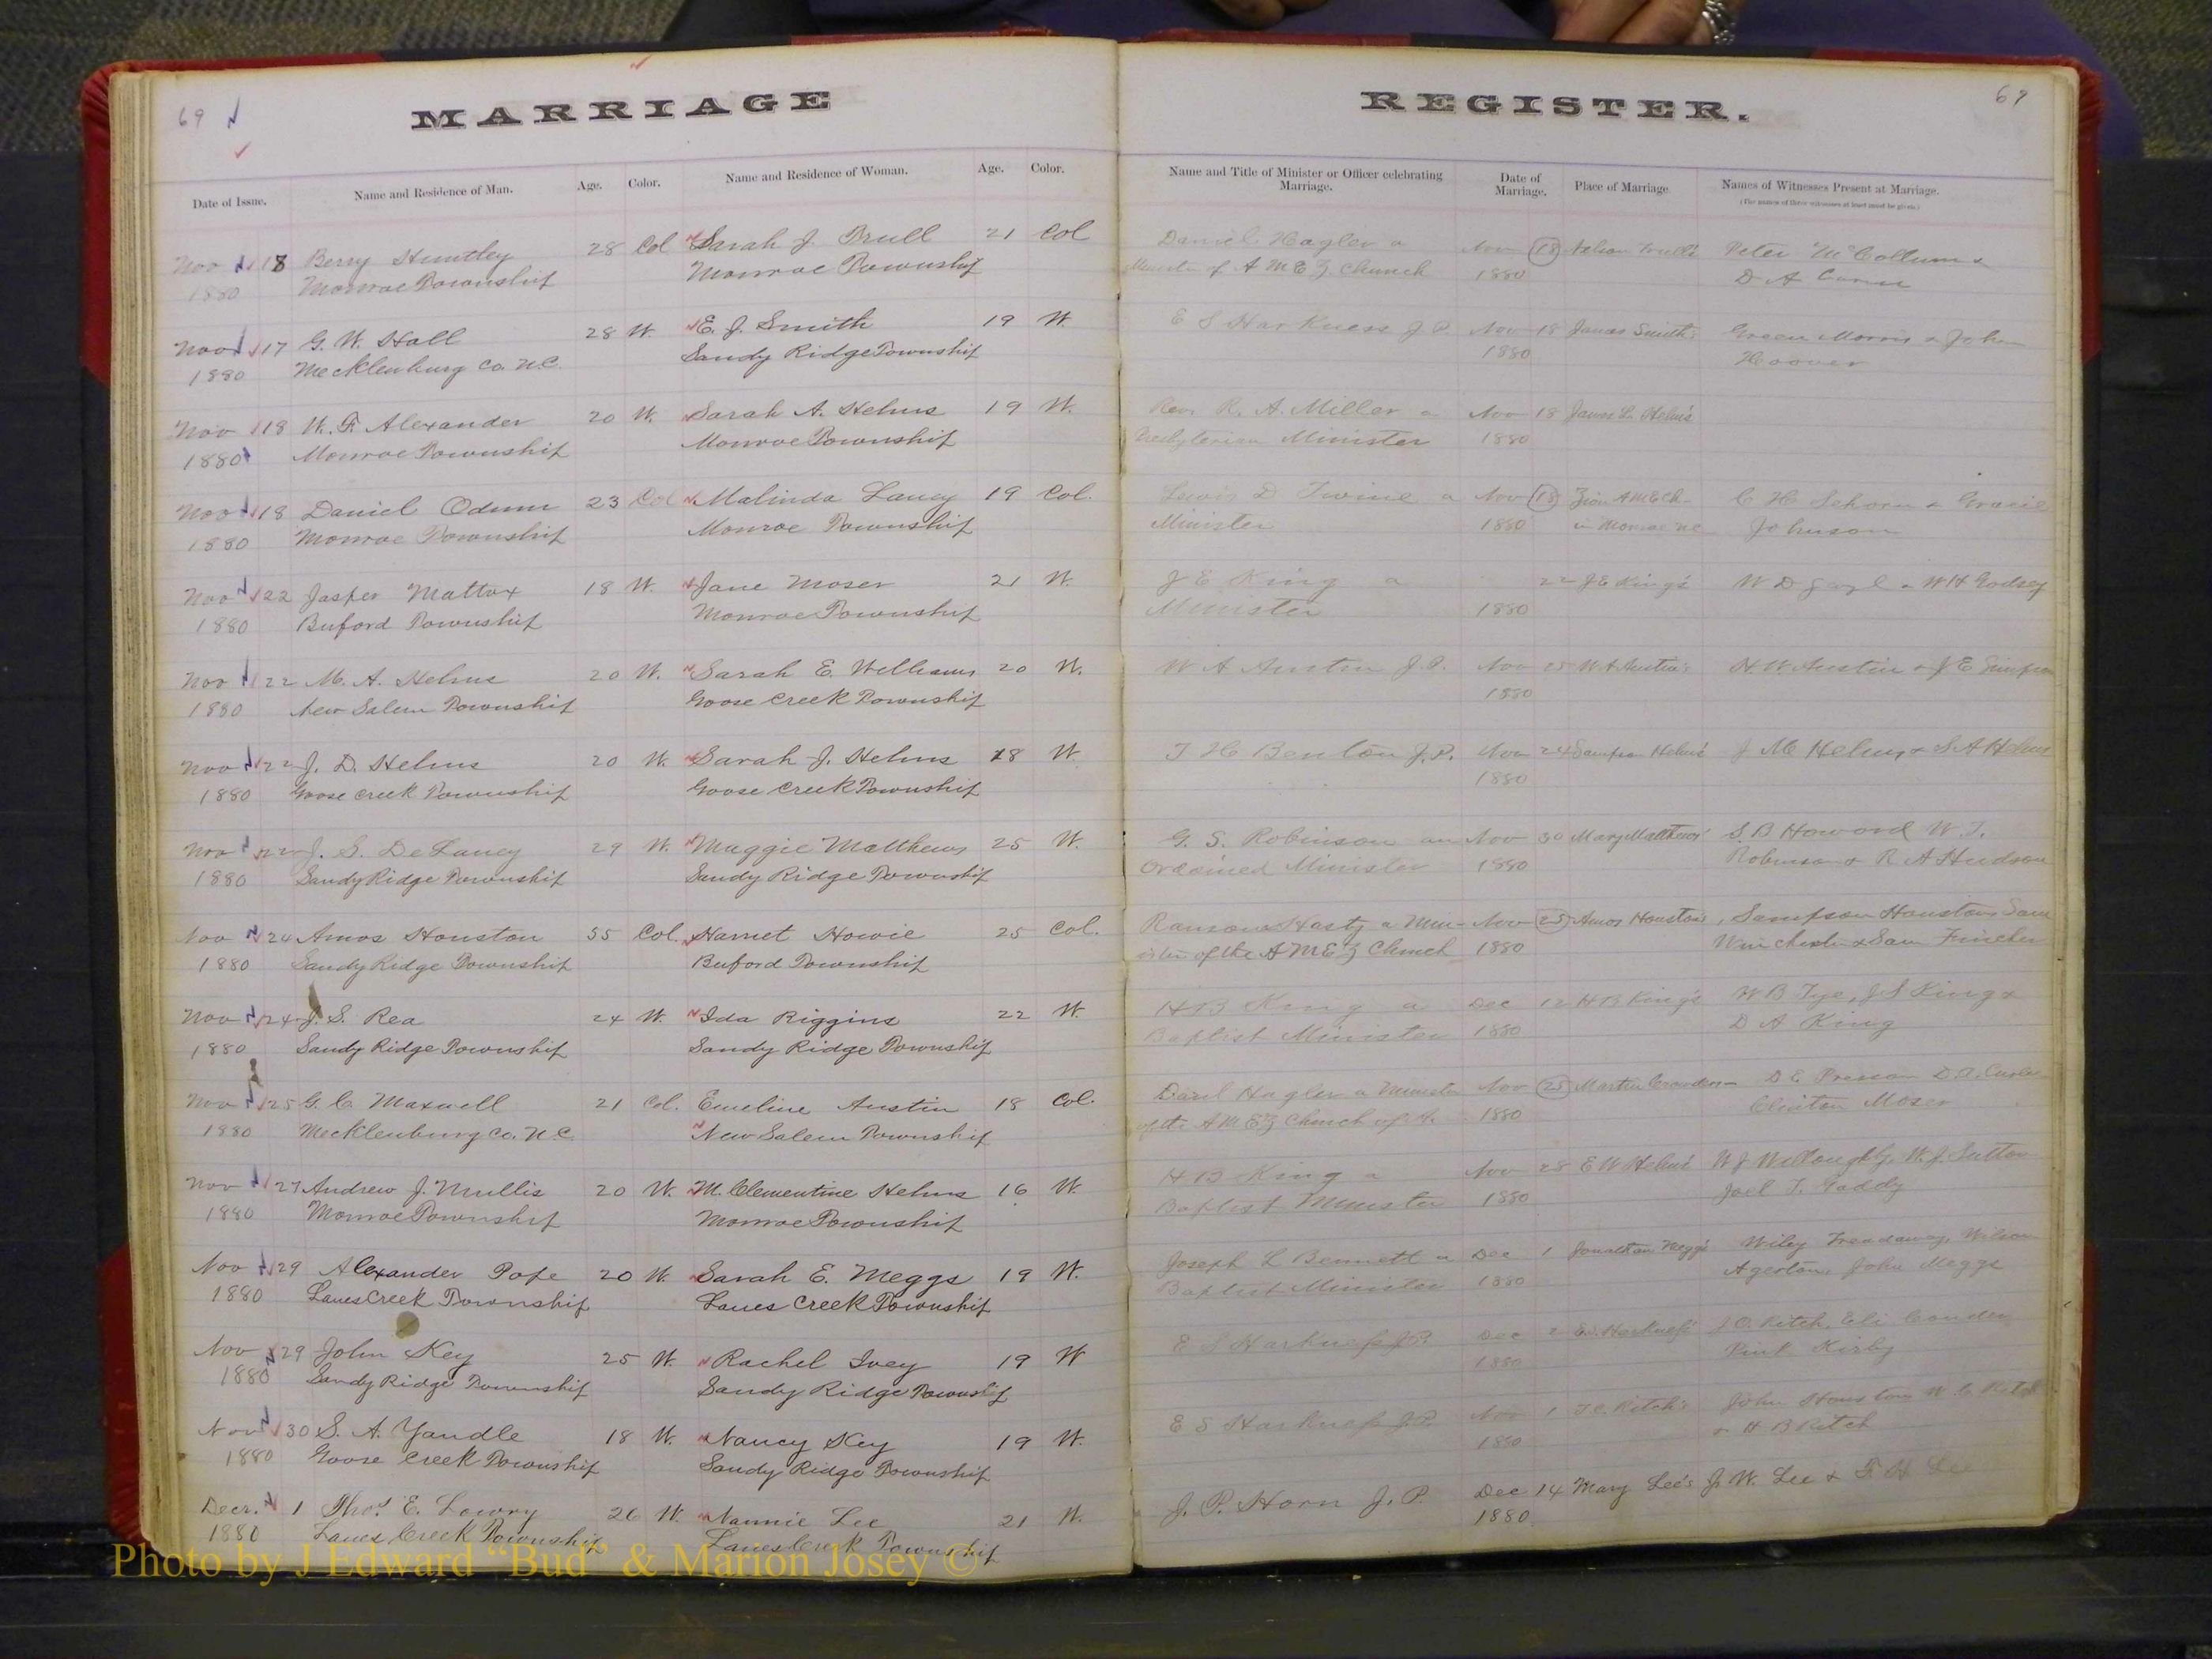 69
MARRIAGE
REGISTER.
69
Date of Issue. Name and Residence of Man. Age. Color. Name and Residence of Woman. Age. Color. Name and Title of Minister or Officer celebrating Marriage. Date of Marriage. Place of Marriage. Names of Witnesses Present at Marriage.
(The names of three witnesses at least must be given.)
Nov 18 Berry Huntley 28 Col Sarah J. Trull 21 Col Daniel Hagler a Nov 18 Trull's Peter McCollum &
1880 Monroe Township Monroe Township Minister of A M E Z. Church 1880 D A
Nov 17 G. W. Hall 28 W. E. J. Smith 19 W. E S Harkness J.P. Nov 18 James Smith's Green Morris & John
1880 Mecklenburg Co. N.C. Sandy Ridge Township 1880 Hoover
Nov 18 W. F. Alexander 20 W. Sarah A. Helms 19 W. Rev R. A. Miller a Nov 18 James L. Helms
1880 Monroe Township Monroe Township Presbyterian Minister 1880
Nov 18 Daniel Odum 23 Col Malinda Laney 19 Col. Lewis D Twine a Nov 18 Zion AME Ch- C H Sehorn & Gracie
1880 Monroe Township Monroe Township Minister 1880 in Monroe NC Johnson
Nov 22 Jasper Mattox 18 W. Jane Moser 21 W. J E King a 22 J E King's W D & W H Godsey
1880 Buford Township Monroe Township Minister 1880
Nov 22 M. A. Helms 20 W. Sarah E. Williams 20 W. W A Austin J.P. Nov 25 W A Austin's H. W. Austin & J E Simpson
1880 New Salem Township Goose Creek Township 1880
Nov 22 J. D. Helms 20 W. Sarah J. Helms 18 W. T H Benton J.P. Nov 24 Helms' J M Helms & S A Helms
1880 Goose Creek Township Goose Creek Township 1880
Nov 22 J. S. DeLaney 29 W. Maggie Matthews 25 W. G. S. Robinson an Nov 30 Mary Matthews' S. B Howard W. T.
1880 Sandy Ridge Township Sandy Ridge Township Ordained Minister 1880 Robinson & R A Hudson
Nov 24 Amos Houston 55 Col. Harriet Howie 25 Col. Ransom Hasty a Min- Nov 25 Amos Houston's, Sampson Houston Sam
1880 Sandy Ridge Township Buford Township ister of the A M E Z Church 1880 Winchester & Sam Fincher
Nov 24 J. S. Rea 24 W. Ida Riggins 22 W. H B King a Dec 12 H B King's W B Tye, J S King &
1880 Sandy Ridge Township Sandy Ridge Township Baptist Minister 1880 D A King
Nov 25 G. C. Maxwell 21 Col. Emeline Austin 18 Col. Danl Hagler a Minister Nov 25 Martin D E Presson D. A.
1880 Mecklenburg Co. N.C. New Salem Township of the A M E Z Church of A. 1880 Clinton Moser
Nov 27 Andrew J. Mullis 20 W. M. Clementine Helms 16 W. H B King a Nov 28 E W Helms' W J Willoughby, W. J. Sutton
1880 Monroe Township Monroe Township Baptist Minister 1880 Joel T. Gaddy
Nov 29 Alexander Pope 20 W. Sarah E. Meggs 19 W. Joseph L Bennett a Dec 1 Jonathan Meggs' Wiley Treadaway, Wilson
1880 Lanes Creek Township Lanes Creek Township Baptist Minister 1880 Agerton, John Meggs
Nov 29 John Key 25 W. Rachel Ivey 19 W E S Harkness J.P. Dec 2 E S Harkness' J. C. Kitch, Eli Conder
1880 Sandy Ridge Township Sandy Ridge Township 1880 Kirby
Nov 30 S. A. Yandle 18 W. Nancy Key 19 W. E S Harkness J.P. Nov 1 J. C. Kitch's John Houston W. C. Kitch
1880 Goose Creek Township Sandy Ridge Township 1880 & H B Kitch
Decr. 1 Thos. E. Lowry 26 W. Nannie Lee 21 W. J. P. Horn J. P. Dec 14 Mary Lee's J. W. Lee & F. H Lee
1880 Lanes Creek Township Lanes Creek Township 1880
Photo by J Edward “Bud” & Marion Josey ©